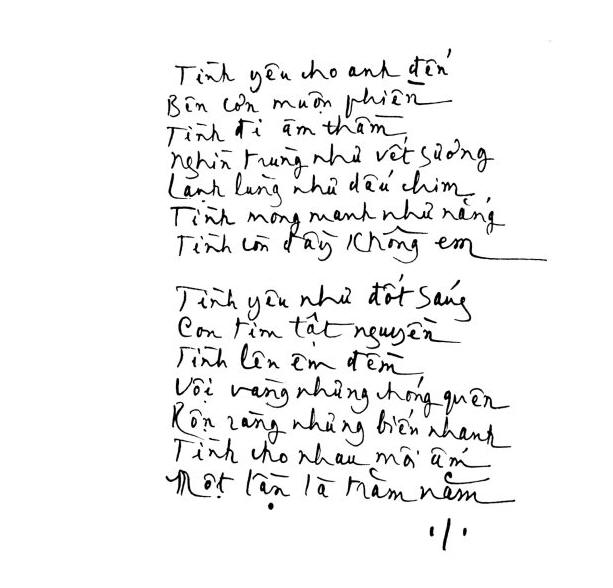 Tình yêu cho anh đến
Bên cơn muộn phiền
Tình đi âm thầm
Nghìn trùng như vết sương
Lạnh lùng như dấu chim
Tình mong manh như nắng
Tình còn đầy không em

Tình yêu như đốt sáng
Con tim tật nguyền
Tình lên êm đềm
Vội vàng nhưng chóng quên
Rộn ràng nhưng biến nhanh
Tình cho nhau môi ấm
Một lần là trăm năm
./.